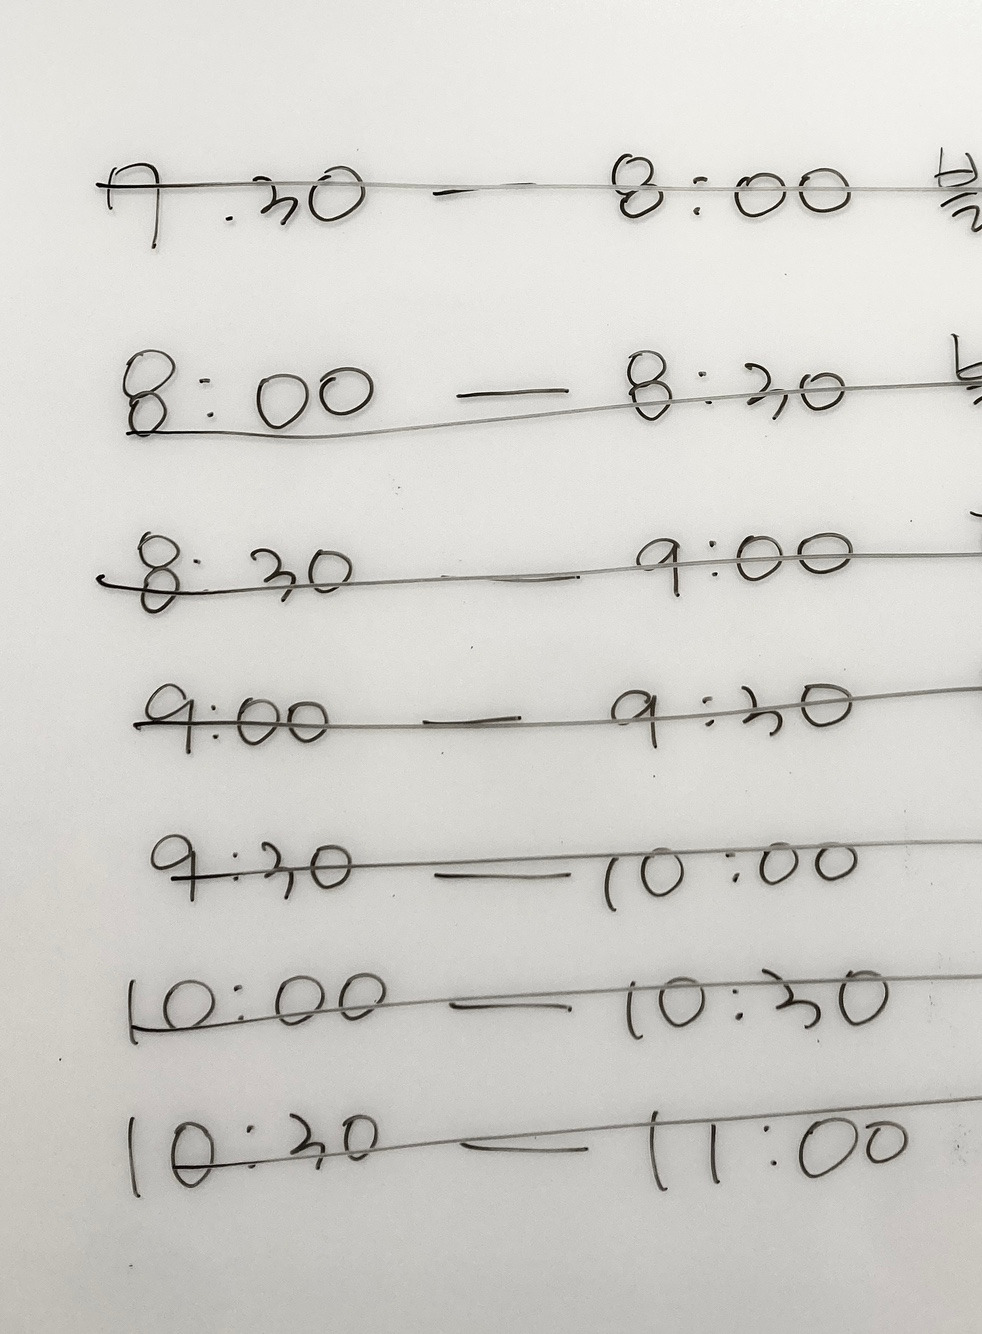 7:30 — 8:00
8:00 — 8:30
8:30 — 9:00
9:00 — 9:30
9:30 — 10:00
10:00 — 10:30
10:30 — 11:00